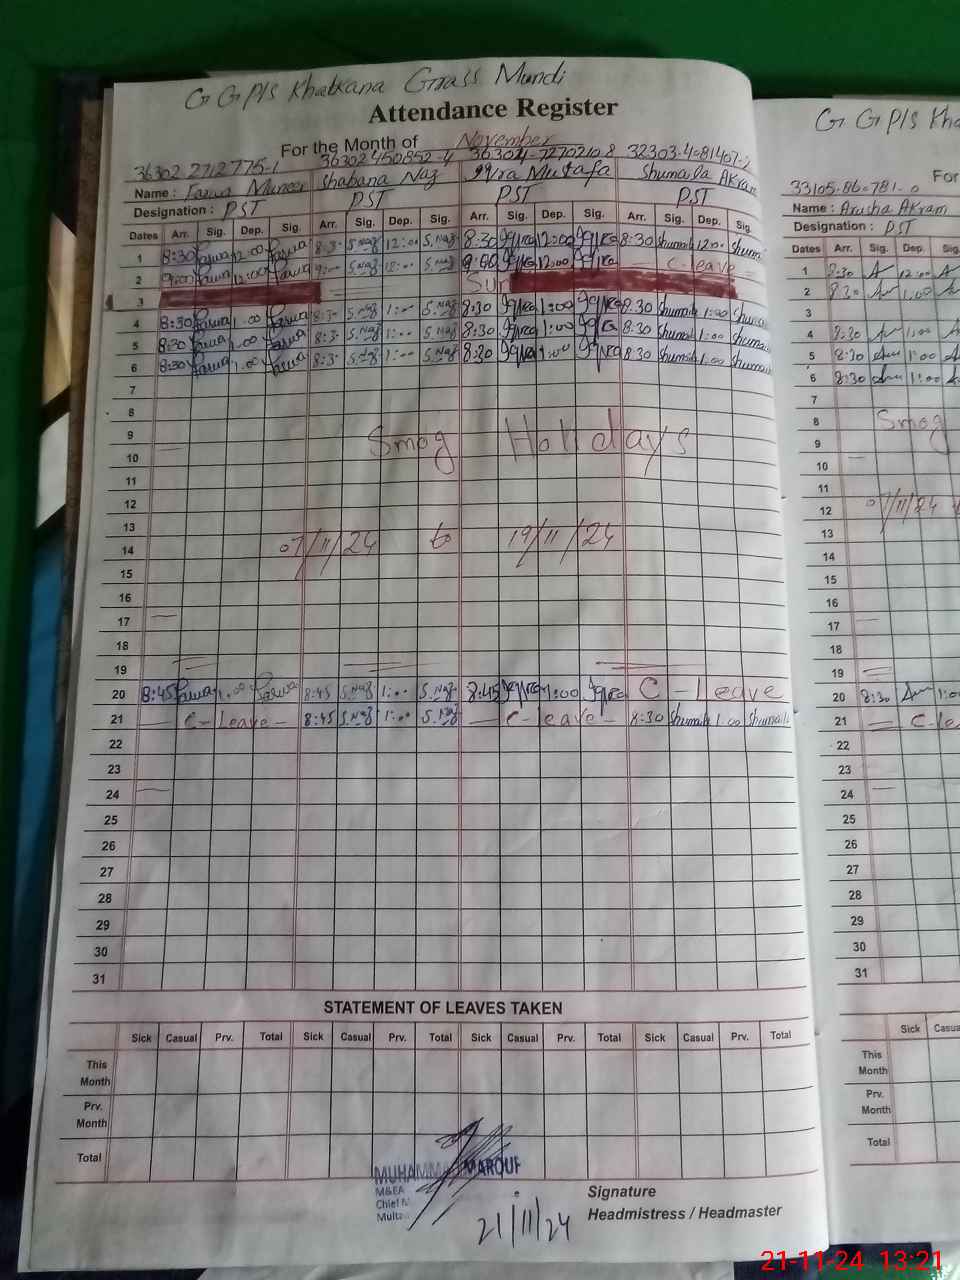 G G P/S Khatkana Grass Mundi
Attendance Register
For the Month of November
36302 2712775-1 36302 450852-4 36304-7270210 8 32303-4081407-2
Name : Farwa Muneer Shabana Naz Iqra Mustafa Shumaila AKram
Designation : PST PST PST PST
Dates Arr. Sig. Dep. Sig. Arr. Sig. Dep. Sig. Arr. Sig. Dep. Sig. Arr. Sig. Dep. Sig.
1 8:30 Farwa 12:00 Farwa 8:30 S.Naz 12:00 S.Naz 8:30 Iqra 12:00 Iqra 8:30 Shumaila 12:00 Shumaila
2 9:00 Farwa 12:00 Farwa 9:00 S.Naz 12:00 S.Naz 9:00 Iqra 12:00 Iqra C-leave
3 Sun
4 8:30 Farwa 1:00 Farwa 8:30 S.Naz 1:00 S.Naz 8:30 Iqra 1:00 Iqra 8:30 Shumaila 1:00 Shumaila
5 8:30 Farwa 1:00 Farwa 8:30 S.Naz 1:00 S.Naz 8:30 Iqra 1:00 Iqra 8:30 Shumaila 1:00 Shumaila
6 8:30 Farwa 1:00 Farwa 8:30 S.Naz 1:00 S.Naz 8:30 Iqra 1:00 Iqra 8:30 Shumaila 1:00 Shumaila
7
8
9 Smog Holidays
10
11
12
13
14 07/11/24 to 19/11/24
15
16
17
18
19
20 8:45 Farwa 1:00 Farwa 8:45 S.Naz 1:00 S.Naz 8:45 Iqra 1:00 Iqra C-Leave
21 C-Leave 8:45 S.Naz 1:00 S.Naz C-leave 8:30 Shumaila 1:00 Shumaila
22
23
24
25
26
27
28
29
30
31
STATEMENT OF LEAVES TAKEN
Sick Casual Prv. Total Sick Casual Prv. Total Sick Casual Prv. Total Sick Casual Prv. Total
This Month
Prv. Month
Total
MUHAMMAD MAROUF
M&EA
Chief
Mult
21/11/24
Signature
Headmistress / Headmaster
G G P/S Kha
For
33105-86-781-0
Name : Arusha AKram
Designation : PST
Dates Arr. Sig. Dep. Sig.
1 8:30 12:00
2 8:30 1:00
3
4 8:30 1:00
5 8:30 1:00
6 8:30 1:00
7
8 Smog
9
10
11
12 07/11/24
13
14
15
16
17
18
19
20 8:30 1:00
21 C-lea
22
23
24
25
26
27
28
29
30
31
Sick Casua
This Month
Prv. Month
Total
21-11-24 13:21